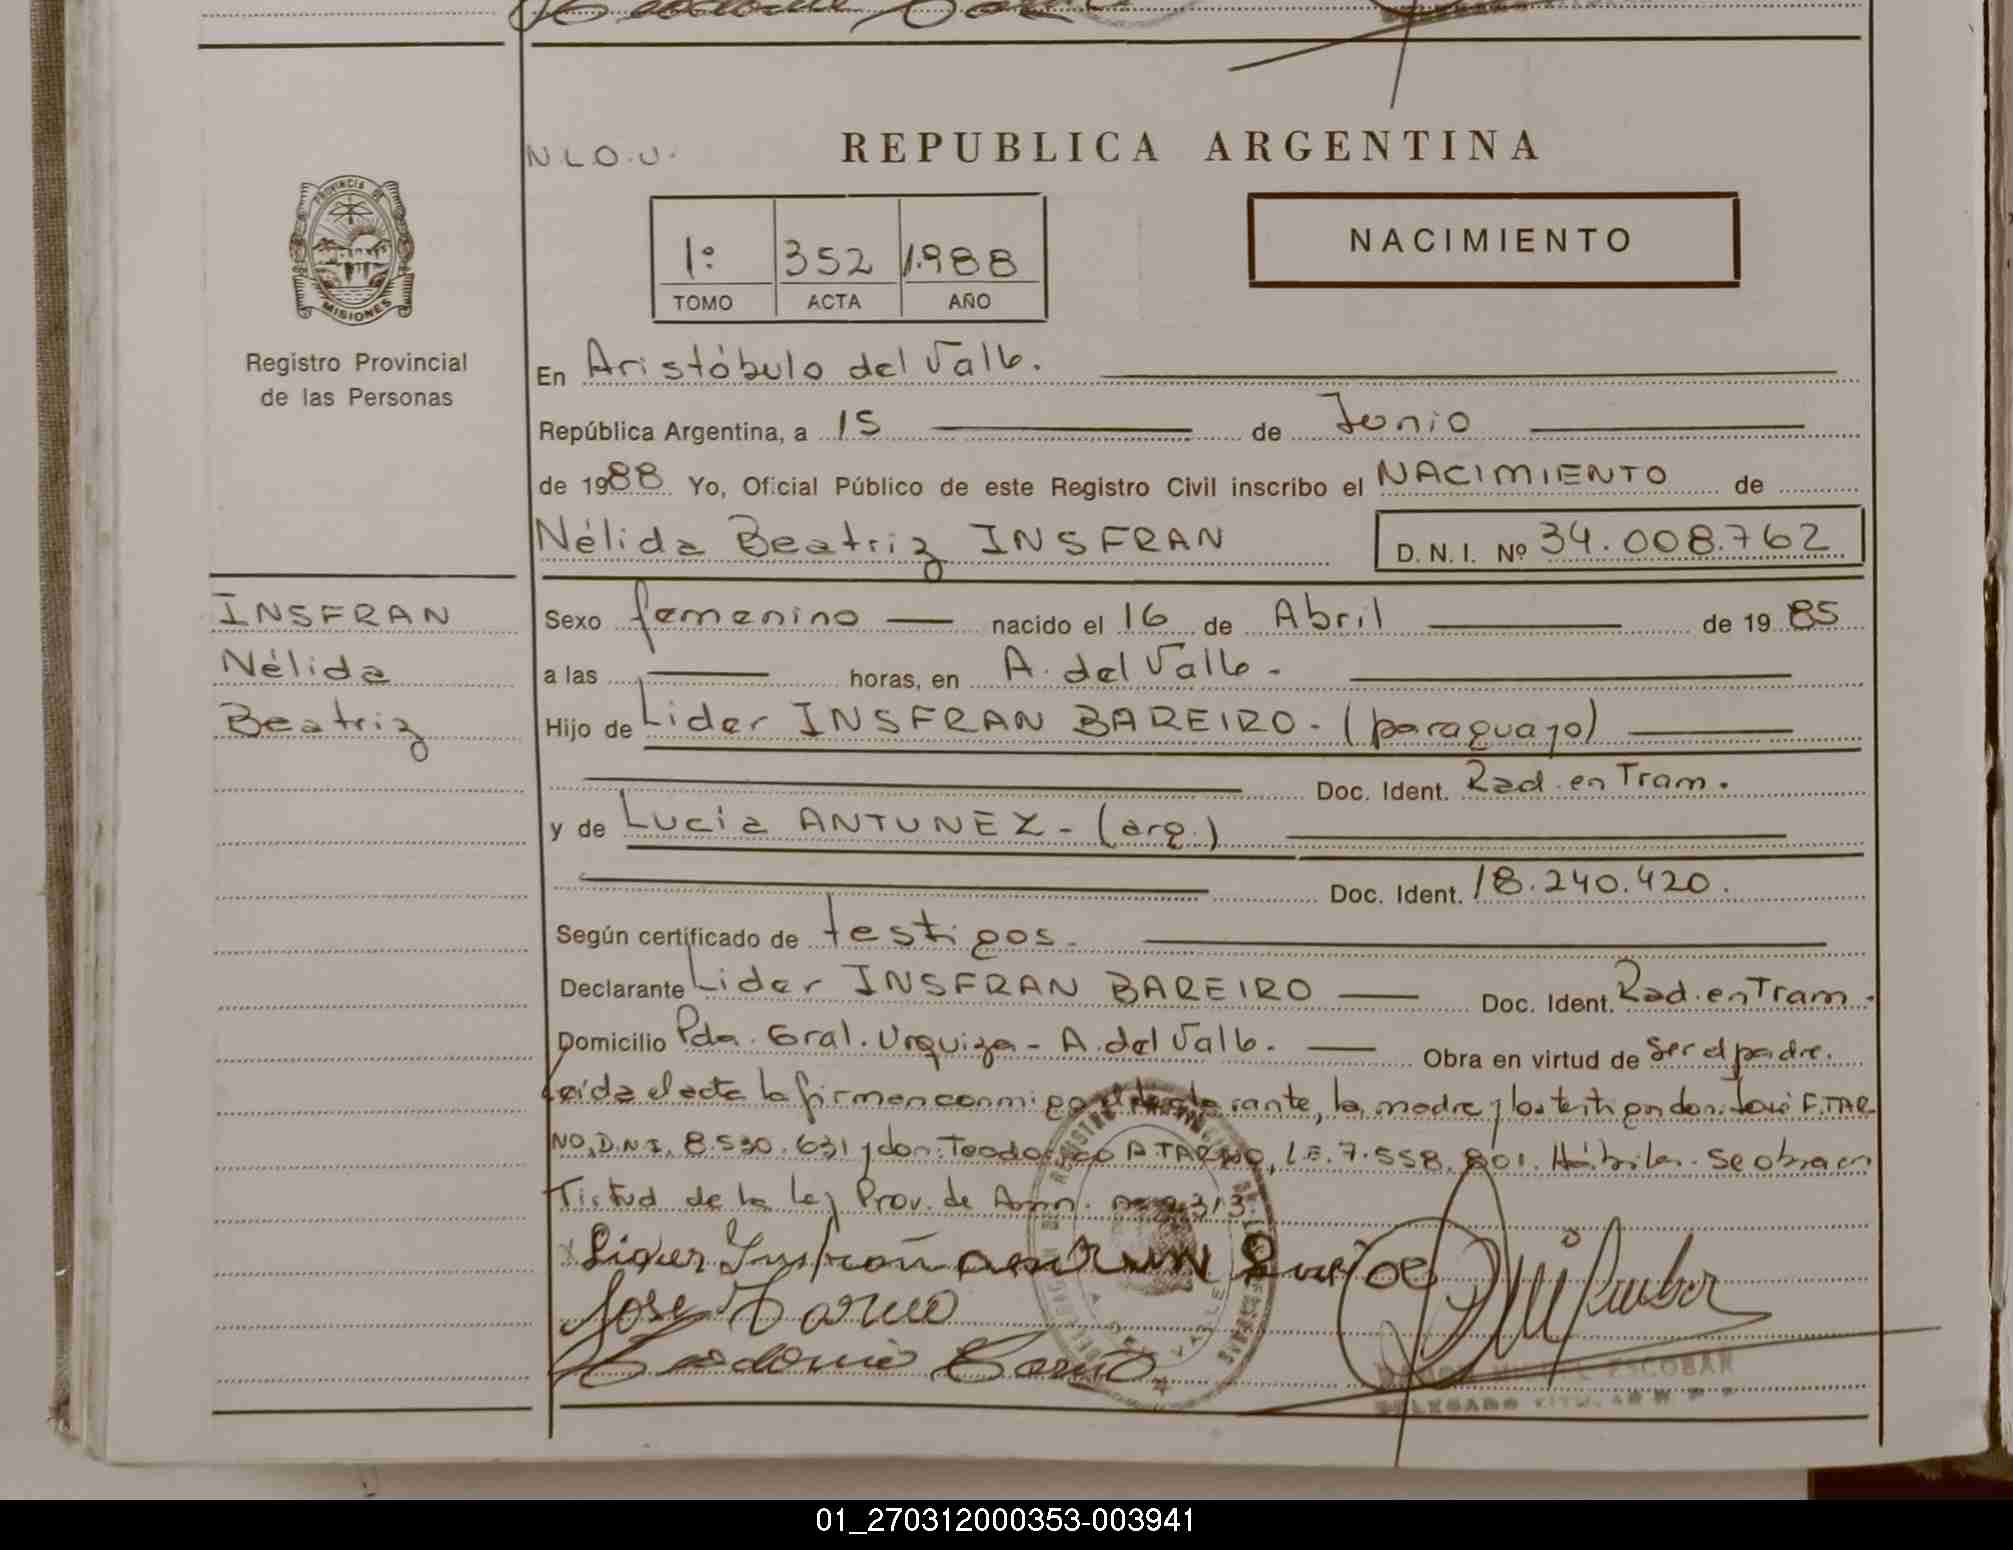 N L O . U .
REPUBLICA ARGENTINA
PROVINCIA DE
MISIONES
1: 352 1.988
TOMO ACTA AÑO
NACIMIENTO
Registro Provincial
de las Personas
En Aristóbulo del Valle.
República Argentina, a 15 de Junio
de 1988 Yo, Oficial Público de este Registro Civil inscribo el NACIMIENTO de
Nélida Beatriz INSFRAN D. N. I. Nº 34.008.762
INSFRAN
Nélida
Beatriz
Sexo femenino nacido el 16 de Abril de 1985
a las horas, en A. del Valle.
Hijo de Lider INSFRAN BAREIRO - (paraguayo)
Doc. Ident. Rad. en Tram.
y de Lucia ANTUNEZ - (arg.)
Doc. Ident. 18.240.420.
Según certificado de testigos.
Declarante Lider INSFRAN BAREIRO Doc. Ident. Rad. en Tram.
Domicilio Pda. Gral. Urquiza - A. del Valle. Obra en virtud de Ser el padre.
Leida el acta la firman conmigo el declarante, la madre y los testigos don: José F. TAR
NO, D.N.I. 8.530.631 y don: Teodorico A. TARNO, L.E. 7.558.801. Hábiles. Se obra en
Tirtud de la Ley Prov. de Amn. nº 2313.
Jose Tarno
ESCOBAR
DELEGADO
01_270312000353-003941